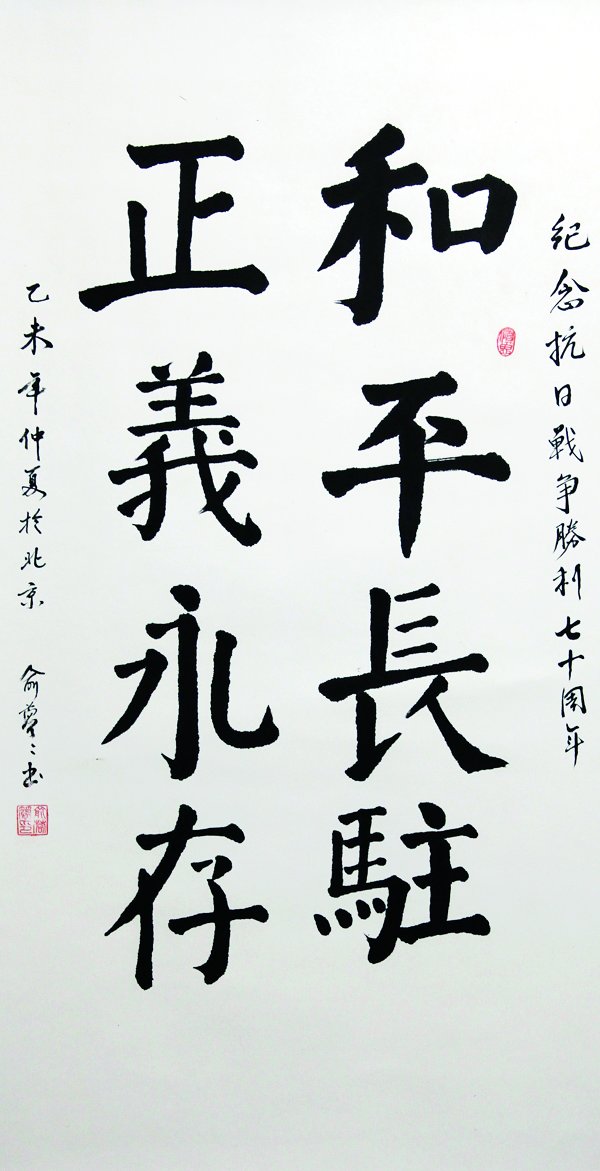 紀念抗日戰争勝利七十周年
和平長駐
正義永存
乙未年仲夏於北京 俞
書